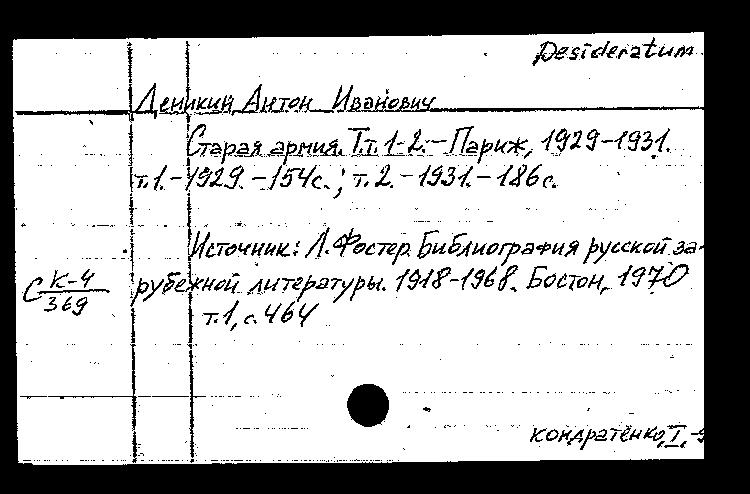 Desideratum
Деникин, Антон Иванович
Старая армия. Т.т. 1-2. – Париж, 1929-1931.
т.1. – 1929. – 154с.; т.2. – 1931. – 186с.
Источник: Л. Фостер. Библиография русской за-
рубежной литературы. 1918-1968. Бостон, 1970
т.1, с. 464
С К-4
369
Кондратенко, I,